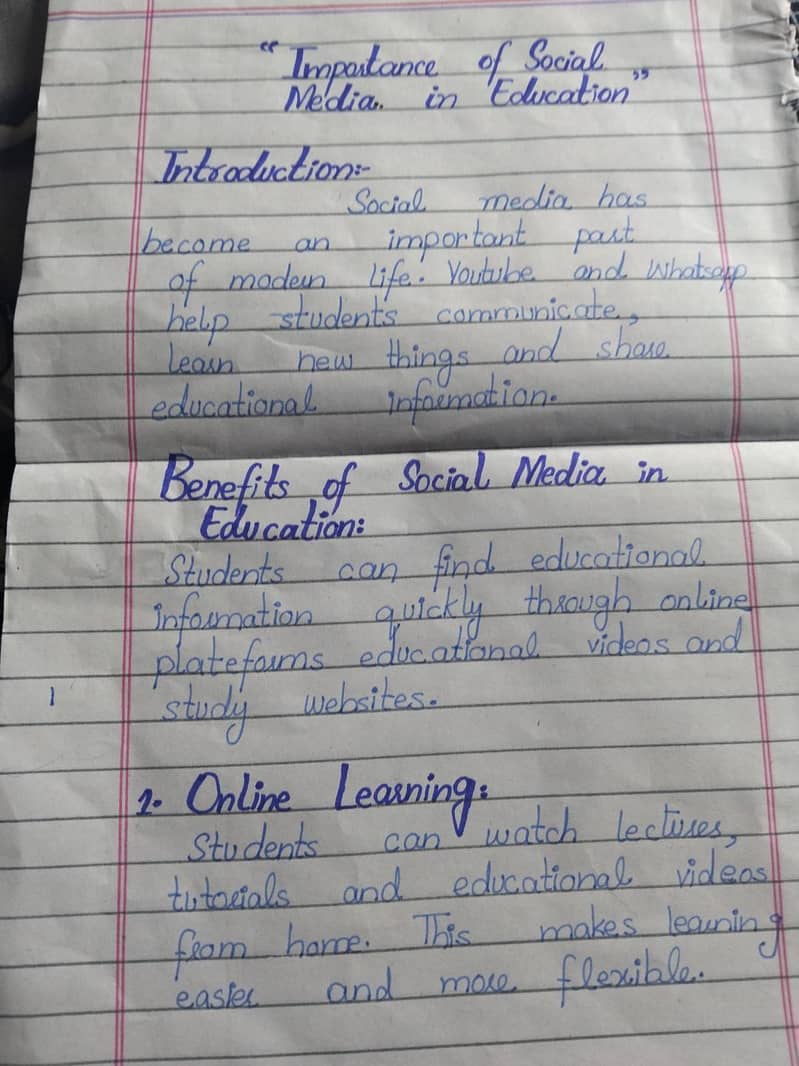 "Importance of Social
Media. in Education"
Introduction:-
Social media has
become an important part
of modern life. Youtube and Whatsapp
help students communicate,
learn new things and share
educational information.
Benefits of Social Media in
Education:
Students can find educational
information quickly through online
plateforms educational videos and
study websites.
1
1. Online Learning:
Students can watch lectures,
tutorials and educational videos
from home. This makes learning
easier and more flexible.